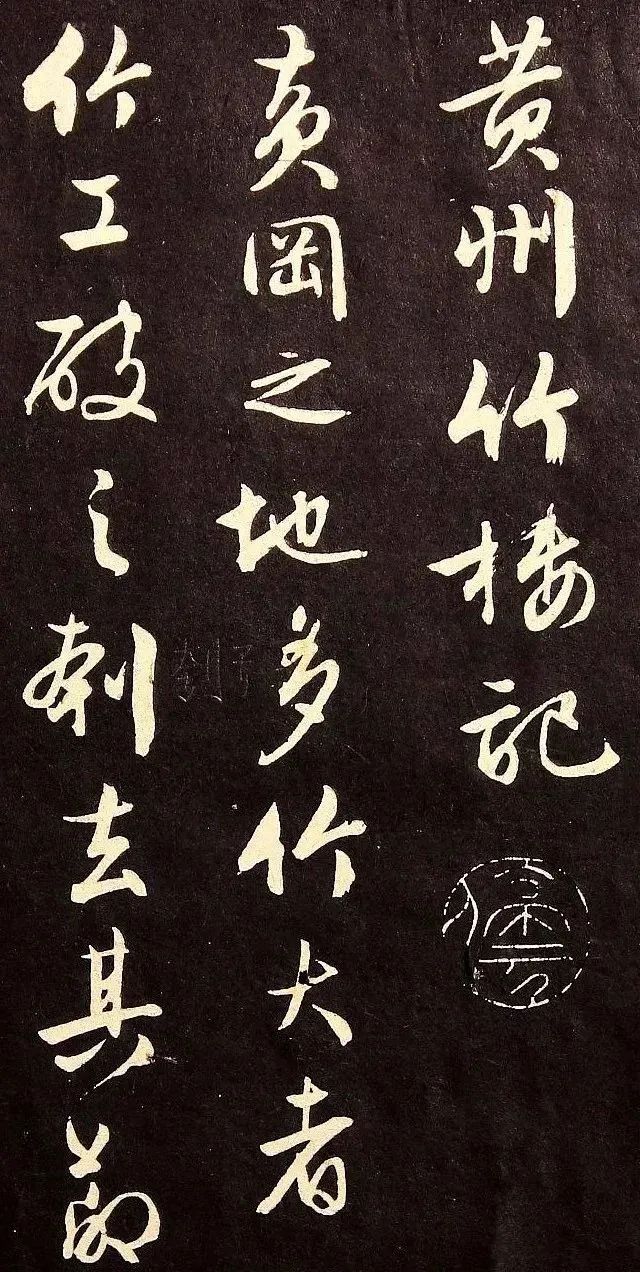 黄州竹樓記
黄岡之地多竹大者
竹工破之刳去其節